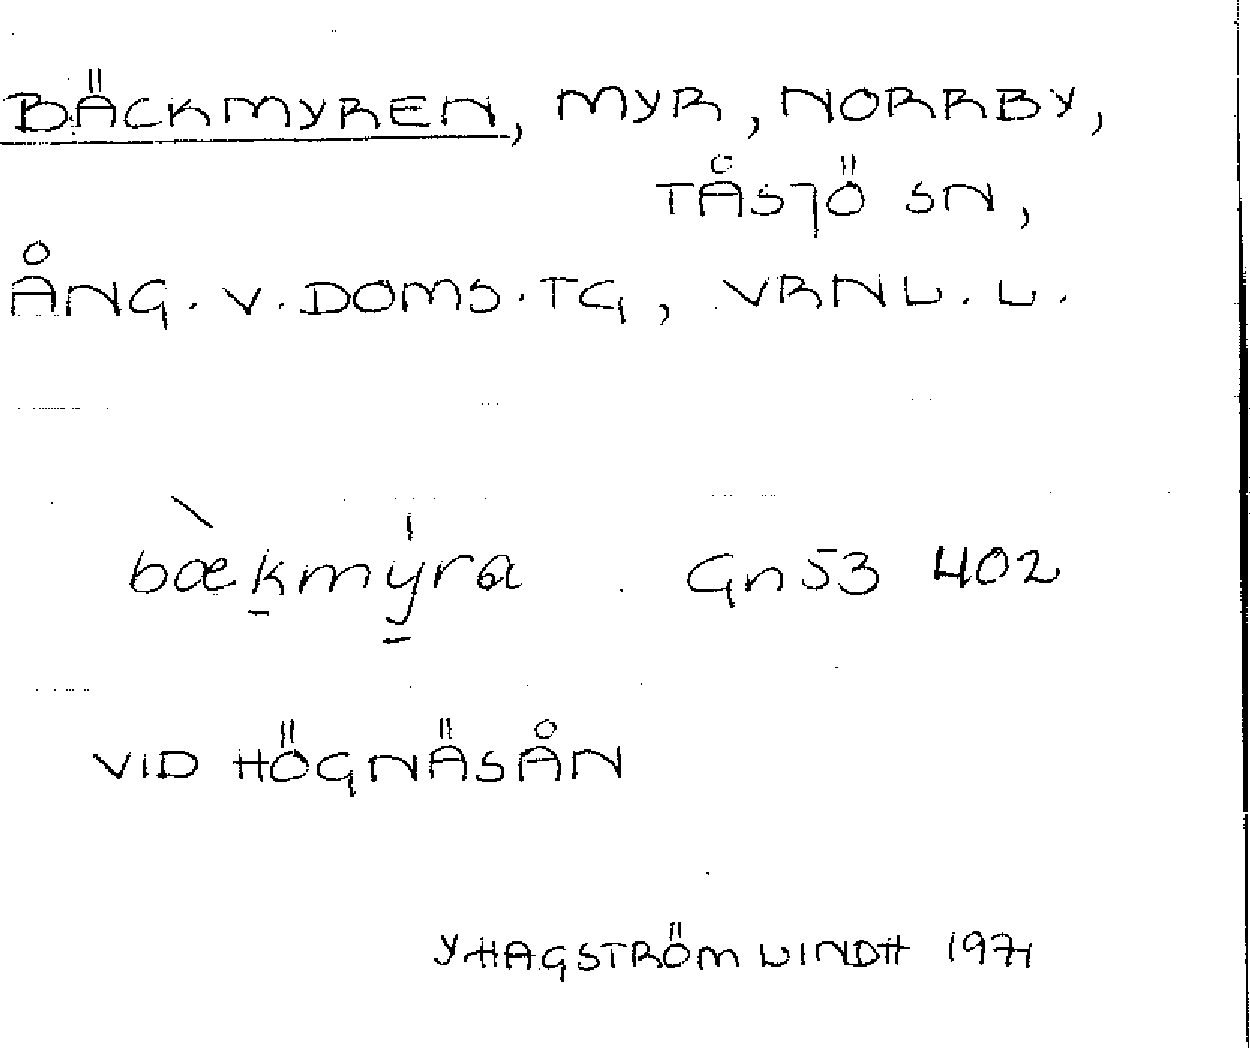 BÄCKMYREN, MYR, NORRBY,
TÅSJÖ SN,
ÅNG. V. DOMS. TG, VRNL. L.
bæ̀k̠mý̠ra Gn53 402
VID HÖGNÄSÅN
Y HAGSTRÖM LINDH 1971